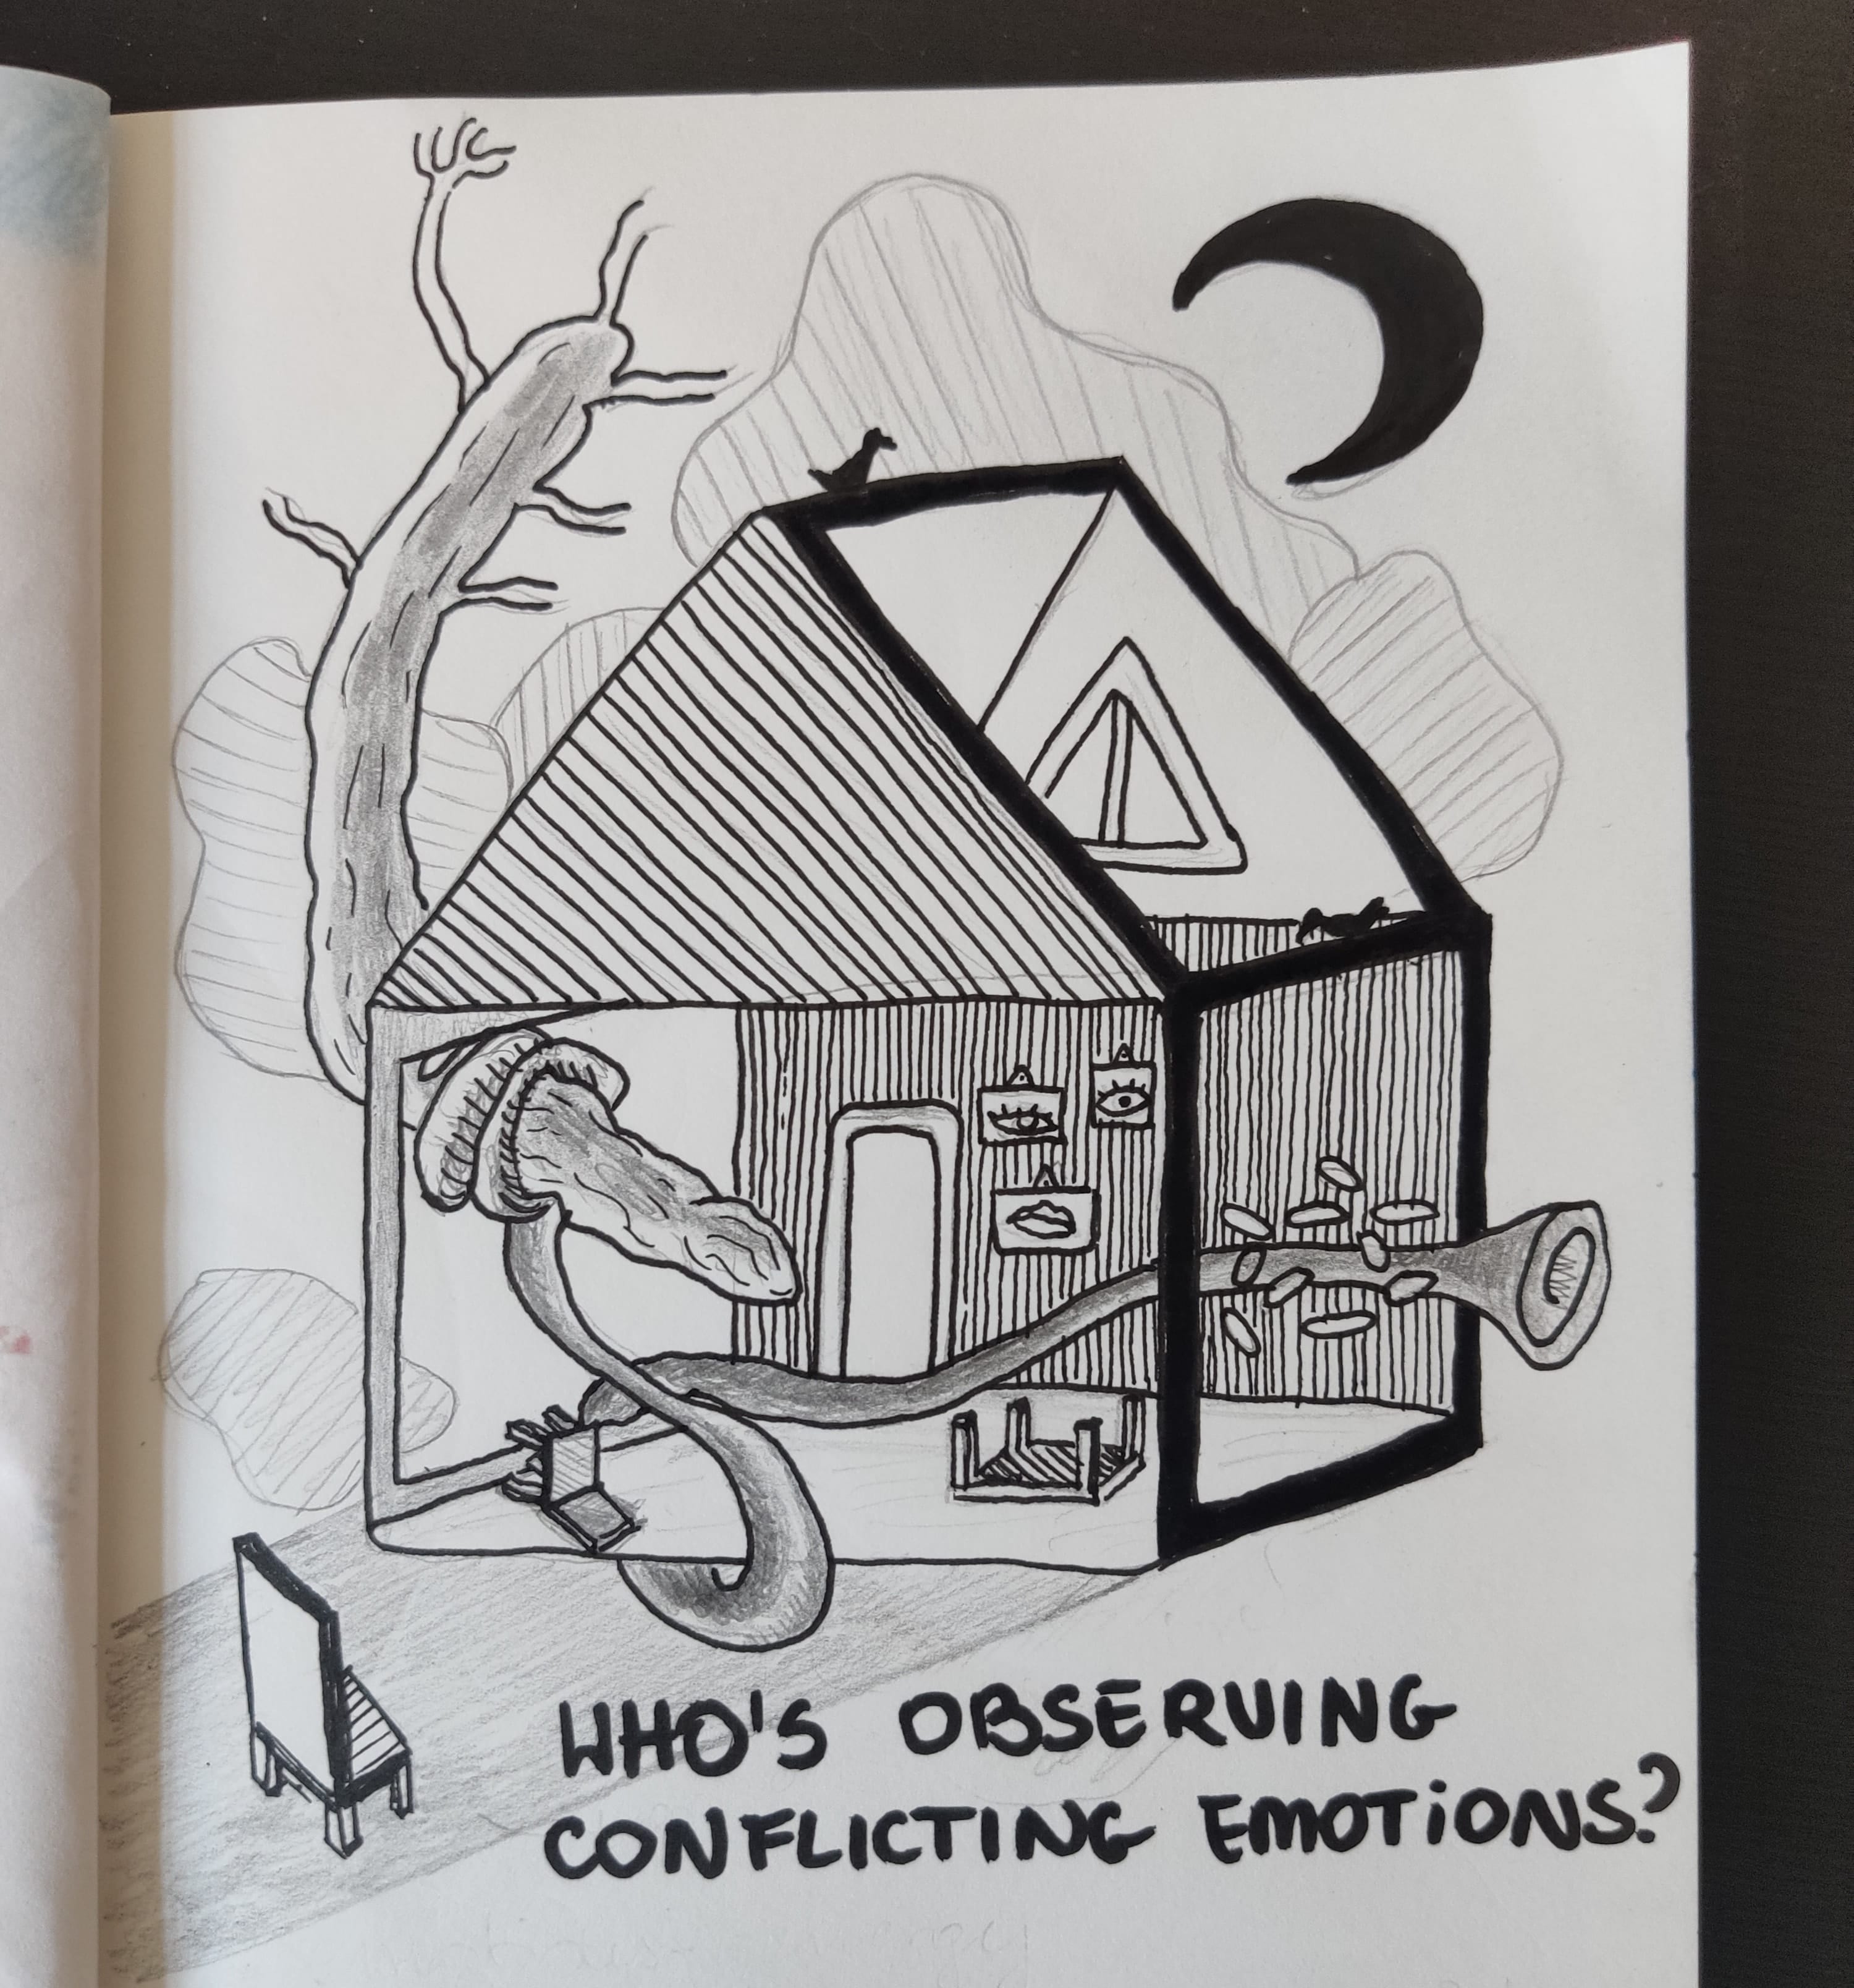 WHO'S OBSERVING
CONFLICTING EMOTiONS?